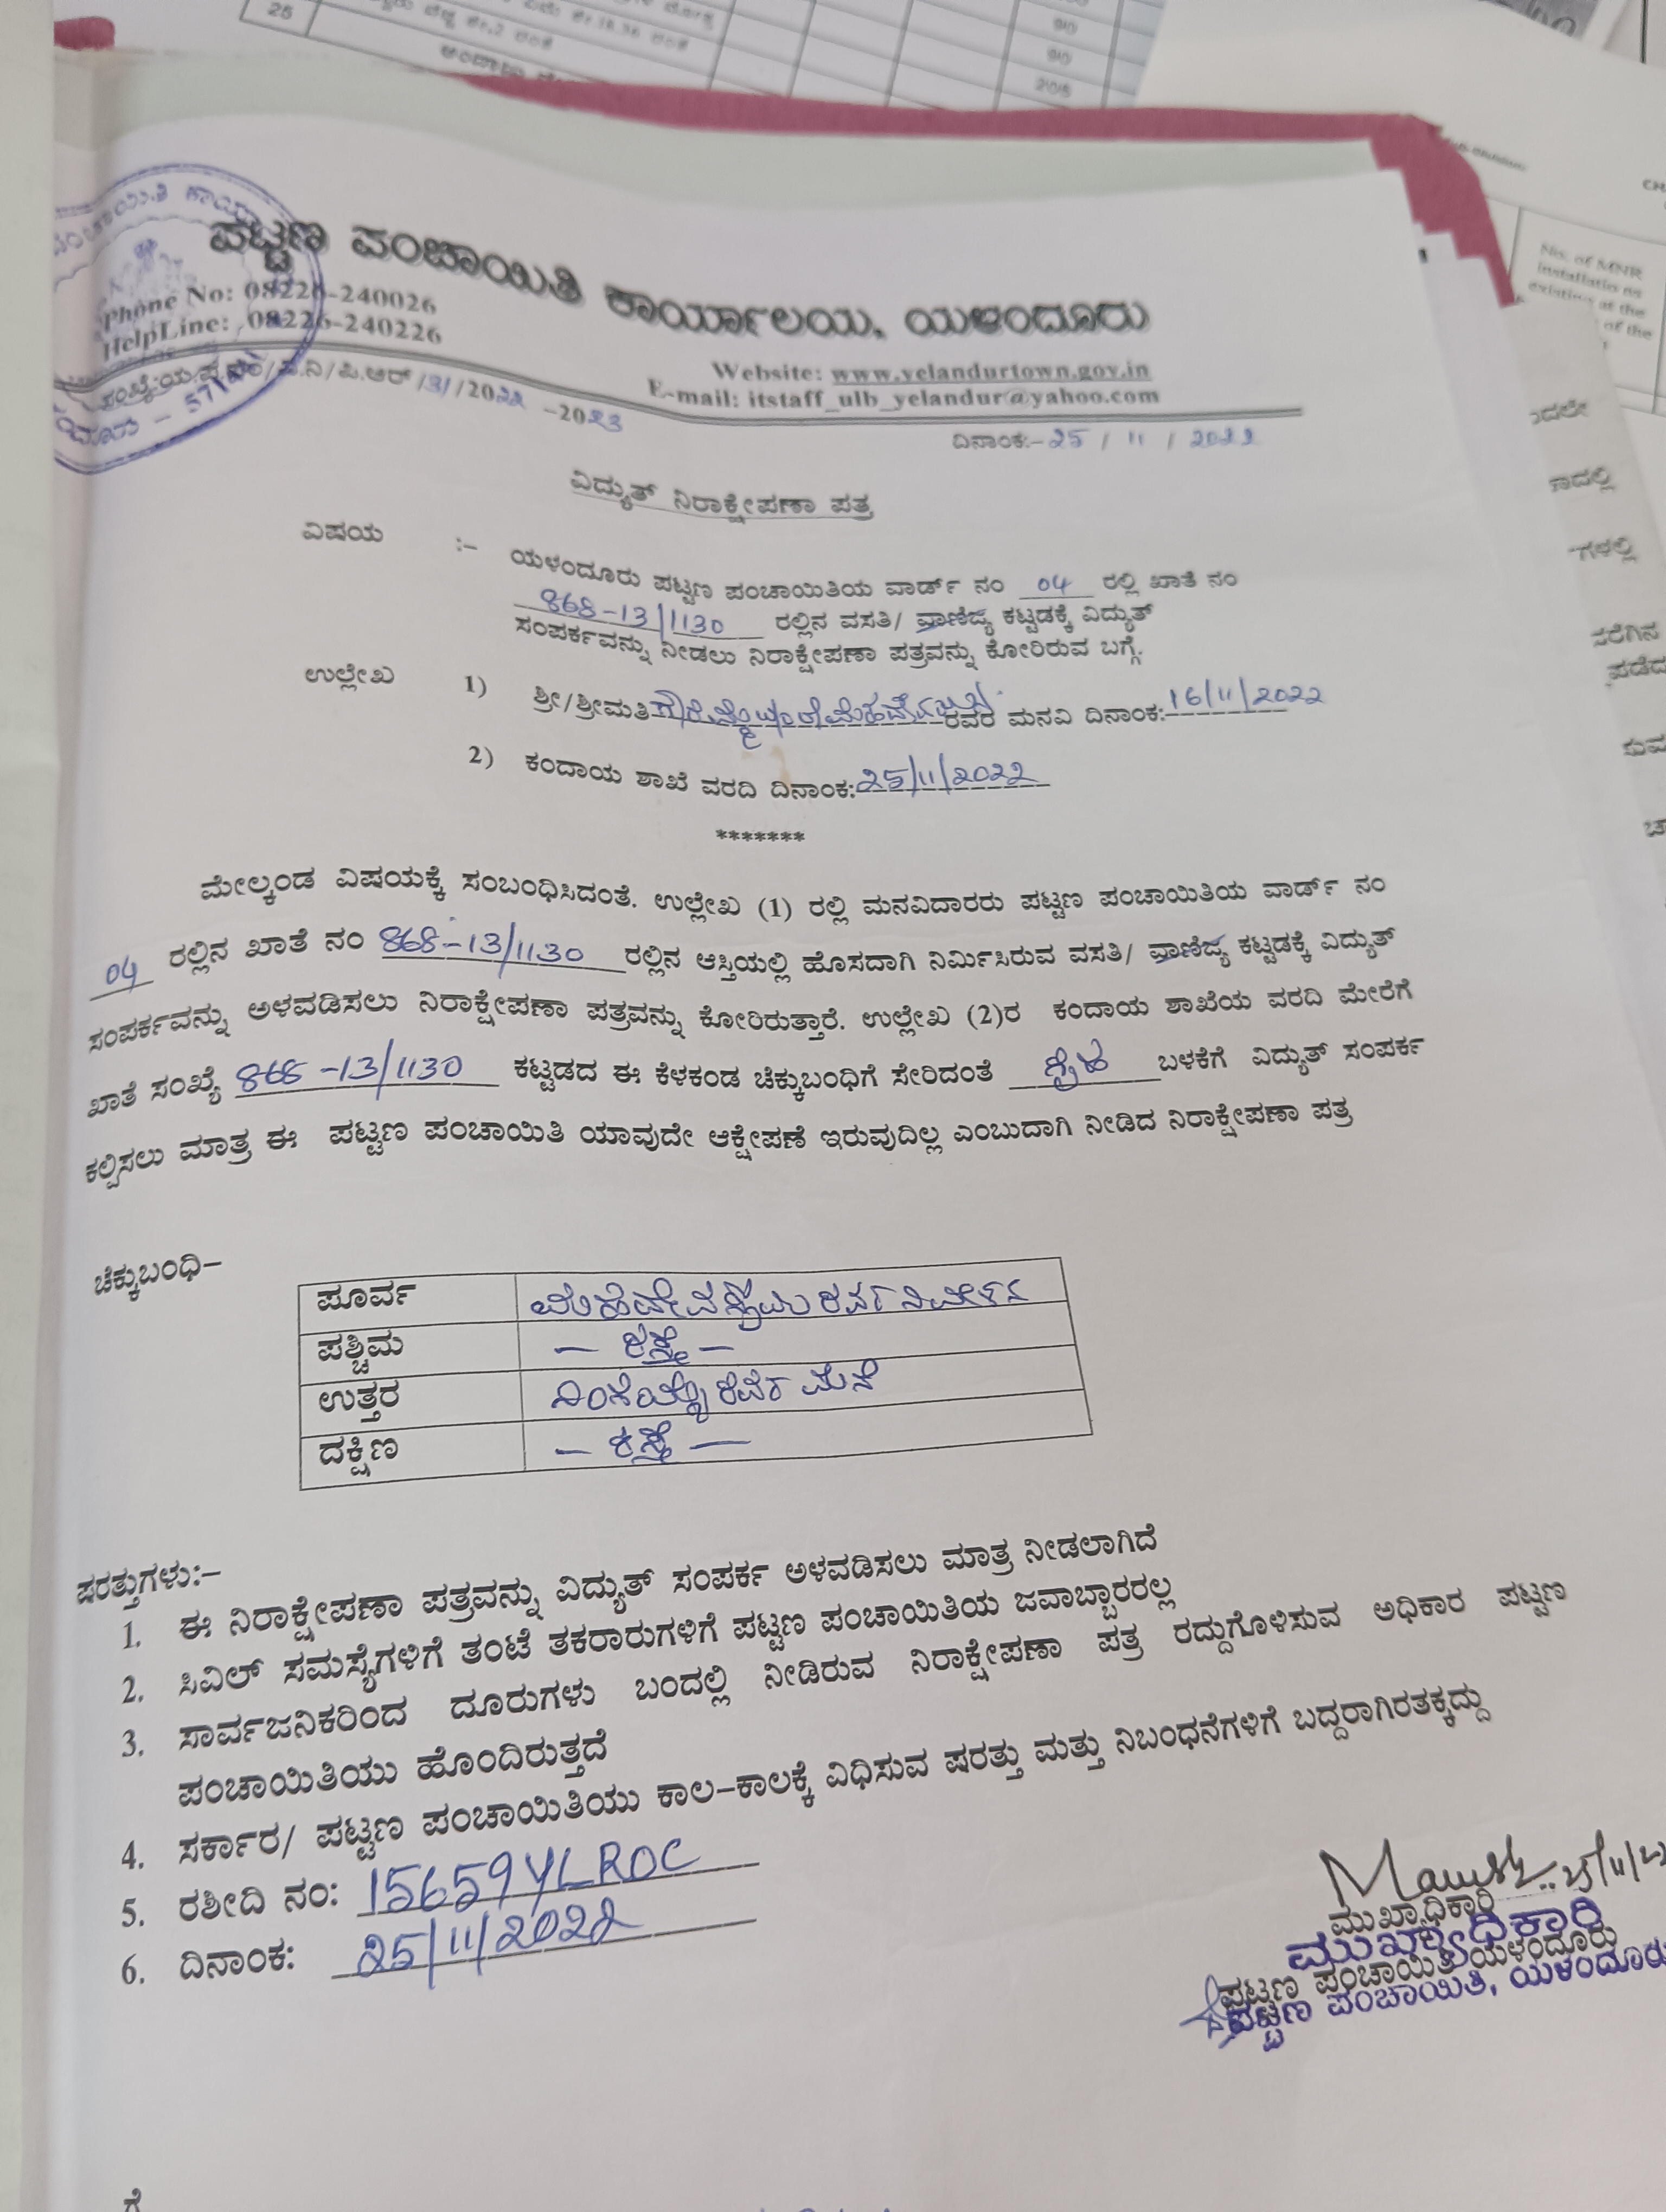 25
ಪಟ್ಟಣ ಪಂಚಾಯಿತಿ ಕಾರ್ಯಾಲಯ, ಯಳಂದೂರು
Phone No: 08226-240026
HelpLine: 08226-240226
Website: www.yelandurtown.gov.in
E-mail: itstaff_ulb_yelandur@yahoo.com
ಸಂಖ್ಯೆ:ಯ.ಪ.ಪಂ/ವಿ.ನಿ/ಪಿ.ಆರ್/31/2022-2023
ದಿನಾಂಕ:-25/11/2022
ವಿದ್ಯುತ್ ನಿರಾಕ್ಷೇಪಣಾ ಪತ್ರ
ವಿಷಯ :- ಯಳಂದೂರು ಪಟ್ಟಣ ಪಂಚಾಯಿತಿಯ ವಾರ್ಡ್ ನಂ 04 ರಲ್ಲಿ ಖಾತೆ ನಂ
868-13/1130 ರಲ್ಲಿನ ವಸತಿ/ ವಾಣಿಜ್ಯ ಕಟ್ಟಡಕ್ಕೆ ವಿದ್ಯುತ್
ಸಂಪರ್ಕವನ್ನು ನೀಡಲು ನಿರಾಕ್ಷೇಪಣಾ ಪತ್ರವನ್ನು ಕೋರಿರುವ ಬಗ್ಗೆ.
ಉಲ್ಲೇಖ 1) ಶ್ರೀ/ಶ್ರೀಮತಿ ರವರ ಮನವಿ ದಿನಾಂಕ:16/11/2022
2) ಕಂದಾಯ ಶಾಖೆ ವರದಿ ದಿನಾಂಕ:25/11/2022
*******
ಮೇಲ್ಕಂಡ ವಿಷಯಕ್ಕೆ ಸಂಬಂಧಿಸಿದಂತೆ. ಉಲ್ಲೇಖ (1) ರಲ್ಲಿ ಮನವಿದಾರರು ಪಟ್ಟಣ ಪಂಚಾಯಿತಿಯ ವಾರ್ಡ್ ನಂ
04 ರಲ್ಲಿನ ಖಾತೆ ನಂ 868-13/1130 ರಲ್ಲಿನ ಆಸ್ತಿಯಲ್ಲಿ ಹೊಸದಾಗಿ ನಿರ್ಮಿಸಿರುವ ವಸತಿ/ ವಾಣಿಜ್ಯ ಕಟ್ಟಡಕ್ಕೆ ವಿದ್ಯುತ್
ಸಂಪರ್ಕವನ್ನು ಅಳವಡಿಸಲು ನಿರಾಕ್ಷೇಪಣಾ ಪತ್ರವನ್ನು ಕೋರಿರುತ್ತಾರೆ. ಉಲ್ಲೇಖ (2)ರ ಕಂದಾಯ ಶಾಖೆಯ ವರದಿ ಮೇರೆಗೆ
ಖಾತೆ ಸಂಖ್ಯೆ 868-13/1130 ಕಟ್ಟಡದ ಈ ಕೆಳಕಂಡ ಚೆಕ್ಕುಬಂಧಿಗೆ ಸೇರಿದಂತೆ ಗೃಹ ಬಳಕೆಗೆ ವಿದ್ಯುತ್ ಸಂಪರ್ಕ
ಕಲ್ಪಿಸಲು ಮಾತ್ರ ಈ ಪಟ್ಟಣ ಪಂಚಾಯಿತಿ ಯಾವುದೇ ಆಕ್ಷೇಪಣೆ ಇರುವುದಿಲ್ಲ ಎಂಬುದಾಗಿ ನೀಡಿದ ನಿರಾಕ್ಷೇಪಣಾ ಪತ್ರ
ಚೆಕ್ಕುಬಂಧಿ-
ಪೂರ್ವ ರವರ ನಿವೇಶನ
ಪಶ್ಚಿಮ - ರಸ್ತೆ -
ಉತ್ತರ ರವರ ಮನೆ
ದಕ್ಷಿಣ - ರಸ್ತೆ -
ಷರತ್ತುಗಳು:-
1. ಈ ನಿರಾಕ್ಷೇಪಣಾ ಪತ್ರವನ್ನು ವಿದ್ಯುತ್ ಸಂಪರ್ಕ ಅಳವಡಿಸಲು ಮಾತ್ರ ನೀಡಲಾಗಿದೆ
2. ಸಿವಿಲ್ ಸಮಸ್ಯೆಗಳಿಗೆ ತಂಟೆ ತಕರಾರುಗಳಿಗೆ ಪಟ್ಟಣ ಪಂಚಾಯಿತಿಯ ಜವಾಬ್ದಾರರಲ್ಲ
3. ಸಾರ್ವಜನಿಕರಿಂದ ದೂರುಗಳು ಬಂದಲ್ಲಿ ನೀಡಿರುವ ನಿರಾಕ್ಷೇಪಣಾ ಪತ್ರ ರದ್ದುಗೊಳಿಸುವ ಅಧಿಕಾರ ಪಟ್ಟಣ
ಪಂಚಾಯಿತಿಯು ಹೊಂದಿರುತ್ತದೆ
4. ಸರ್ಕಾರ/ ಪಟ್ಟಣ ಪಂಚಾಯಿತಿಯು ಕಾಲ-ಕಾಲಕ್ಕೆ ವಿಧಿಸುವ ಷರತ್ತು ಮತ್ತು ನಿಬಂಧನೆಗಳಿಗೆ ಬದ್ದರಾಗಿರತಕ್ಕದ್ದು
5. ರಶೀದಿ ನಂ: 15659YLROC
6. ದಿನಾಂಕ: 25/11/2022
ಮುಖ್ಯಾಧಿಕಾರಿ
ಮುಖ್ಯಾಧಿಕಾರಿ
ಪಟ್ಟಣ ಪಂಚಾಯಿತಿ ಯಳಂದೂರು
ಪಟ್ಟಣ ಪಂಚಾಯಿತಿ, ಯಳಂದೂರು
No. of MNR
installations
existing at the
of the